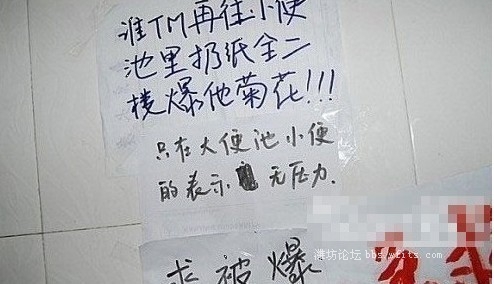 谁TM再往小便
池里扔纸全二
楼爆他菊花!!!
只在大便池小便
的表示 无压力.
求被爆
潍坊论坛 bbs.wfits.com